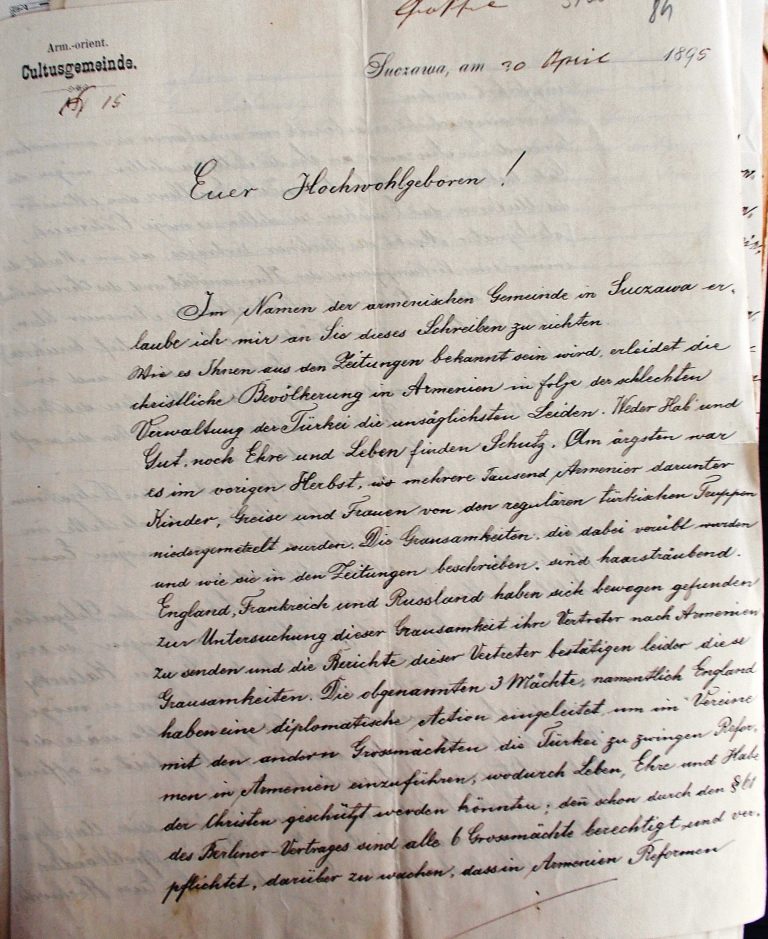 84
Arm.-orient.
Cultusgemeinde.
15
Suczawa, am 30 April 1895
Euer Hochwohlgeboren!
Im Namen der armenischen Gemeinde in Suczawa er-
laube ich mir an Sie dieses Schreiben zu richten
Wie es Ihnen aus den Zeitungen bekannt sein wird, erleidet die
christliche Bevölkerung in Armenien in folje der schlechten
Verwaltung der Türkei die unsäglichsten Leiden. Weder Hab und
Gut, noch Ehre und Leben finden Schutz. Am ärgsten war
es im vorigen Herbst, wo mehrere Tausend Armenier darunter
Kinder, Greise und Frauen von den regulären türkischen Truppen
niedergemetzelt wurden. Die Grausamkeiten, die dabei verübt wurden
und wie sie in den Zeitungen beschrieben, sind haarsträubend.
England, Frankreich und Russland haben sich bewegen gefunden
zur Untersuchung dieser Grausamkeit ihre Vertreter nach Armenien
zu senden und die Berichte dieser Vertreter bestätigen leider diese
Grausamkeiten. Die obgenannten 3 Mächte, namentlich England
haben eine diplomatische Action eingeleitet um im Vereine
mit den andern Grossmächten die Türkei zu zwingen Refor-
men in Armenien einzuführen, wodurch Leben, Ehre und Habe
der Christen geschützt werden könnten; den̄ schon durch den § 61
des Berliner-Vertrages sind alle 6 Grossmächte berechtigt und ver-
pflichtet, darüber zu wachen, dass in Armenien Reformen